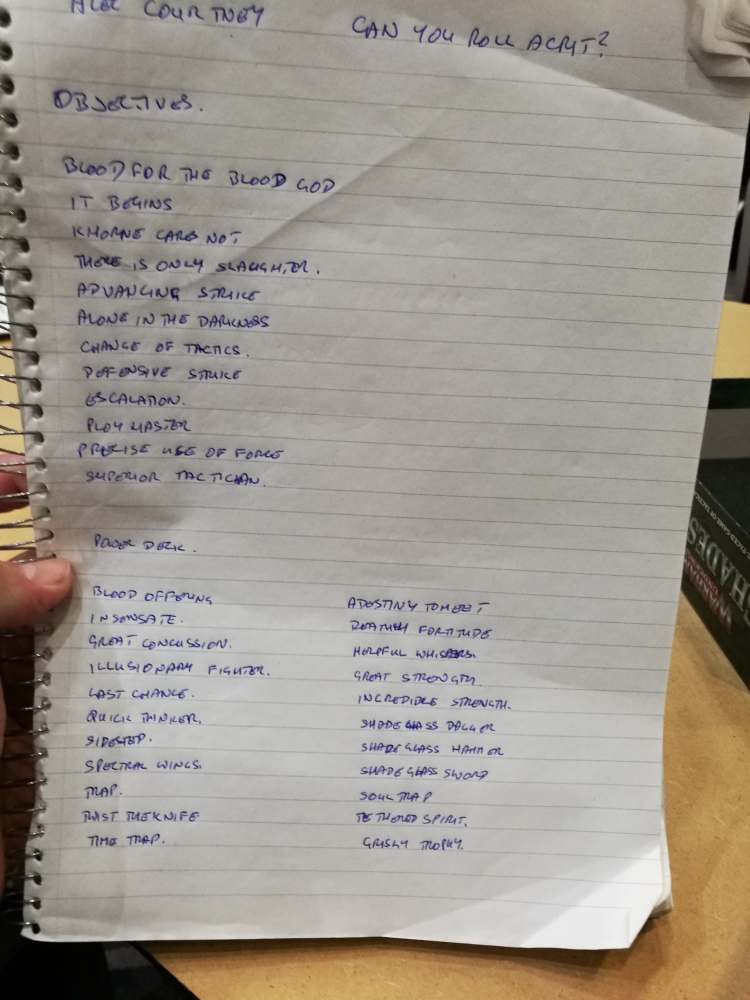 ALEC COURTNEY
CAN YOU ROLL A CRIT?
OBJECTIVES.
BLOOD FOR THE BLOOD GOD
IT BEGINS
KHORNE CARES NOT
THERE IS ONLY SLAUGHTER.
ADVANCING STRIKE
ALONE IN THE DARKNESS
CHANGE OF TACTICS.
DEFENSIVE STRIKE
ESCALATION.
PLOY MASTER
PRECISE USE OF FORCE
SUPERIOR TACTICIAN.
POWER DECK.
BLOOD OFFERING
INSENSATE.
GREAT CONCUSSION.
ILLUSIONARY FIGHTER.
LAST CHANCE.
QUICK THINKER.
SIDESTEP.
SPECTRAL WINGS.
TRAP.
TWIST THE KNIFE
TIME TRAP.
A DESTINY TO MEET
DEATHLY FORTITUDE
HELPFUL WHISPERS.
GREAT STRENGTH.
INCREDIBLE STRENGTH.
SHADEGLASS DAGGER
SHADEGLASS HAMMER
SHADEGLASS SWORD
SOUL TRAP
TETHERED SPIRIT.
GRISLY TROPHY.
SHADES